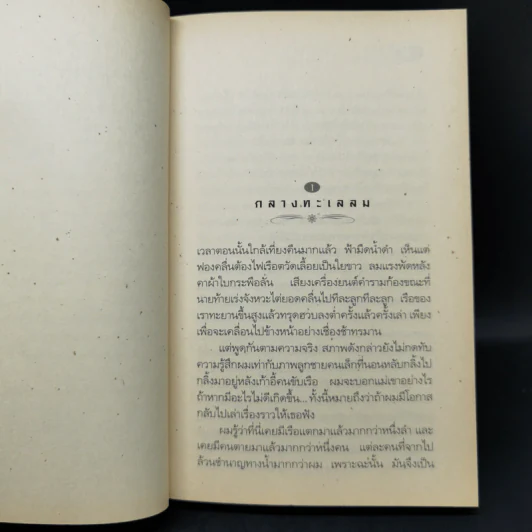 1
กลางทะเลลม
เวลาตอนนั้นใกล้เที่ยงคืนมากแล้ว ฟ้ามืดน้ำดำ เห็นแต่
ฟองคลื่นต้องไฟเรือตวัดเลื้อยเป็นใยขาว ลมแรงพัดหลัง
คาผ้าใบกระพือลั่น เสียงเครื่องยนต์คำรามก้องขณะที่
นายท้ายเร่งจังหวะไต่ยอดคลื่นไปทีละลูกทีละลูก เรือของ
เราทะยานขึ้นสูงแล้วทรุดฮวบลงต่ำครั้งแล้วครั้งเล่า เพียง
เพื่อจะเคลื่อนไปข้างหน้าอย่างเชื่องช้าทรมาน
แต่พูดกันตามความจริง สภาพดังกล่าวยังไม่กดทับ
ความรู้สึกผมเท่ากับภาพลูกชายคนเล็กที่นอนหลับกลิ้งไป
กลิ้งมาอยู่หลังเก้าอี้คนขับเรือ ผมจะบอกแม่เขาอย่างไร
ถ้าหากมีอะไรไม่ดีเกิดขึ้น... ทั้งนี้หมายถึงว่าถ้าผมมีโอกาส
กลับไปเล่าเรื่องราวให้เธอฟัง
ผมรู้ว่าที่นี่เคยมีเรือแตกมาแล้วมากกว่าหนึ่งลำ และ
เคยมีคนตายมาแล้วมากกว่าหนึ่งคน แต่ละคนที่จากไป
ล้วนชำนาญทางน้ำมากกว่าผม เพราะฉะนั้น มันจึงเป็น